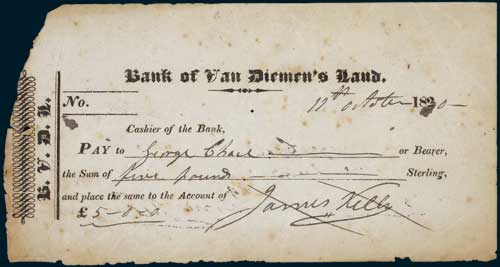 B. V. D. L.
Bank of Van Diemen's Land.
No.
12th October 1830
Cashier of the Bank,
PAY to George Chace or Bearer,
the Sum of five pound Sterling,
and place the same to the Account of
£ 5-0-0 James Kelly